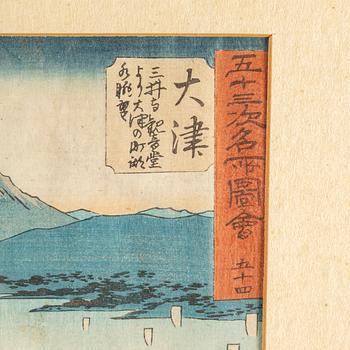 五十三次名所圖會 五十四
大津
三井寺観音堂
より大津の町湖
水眺望